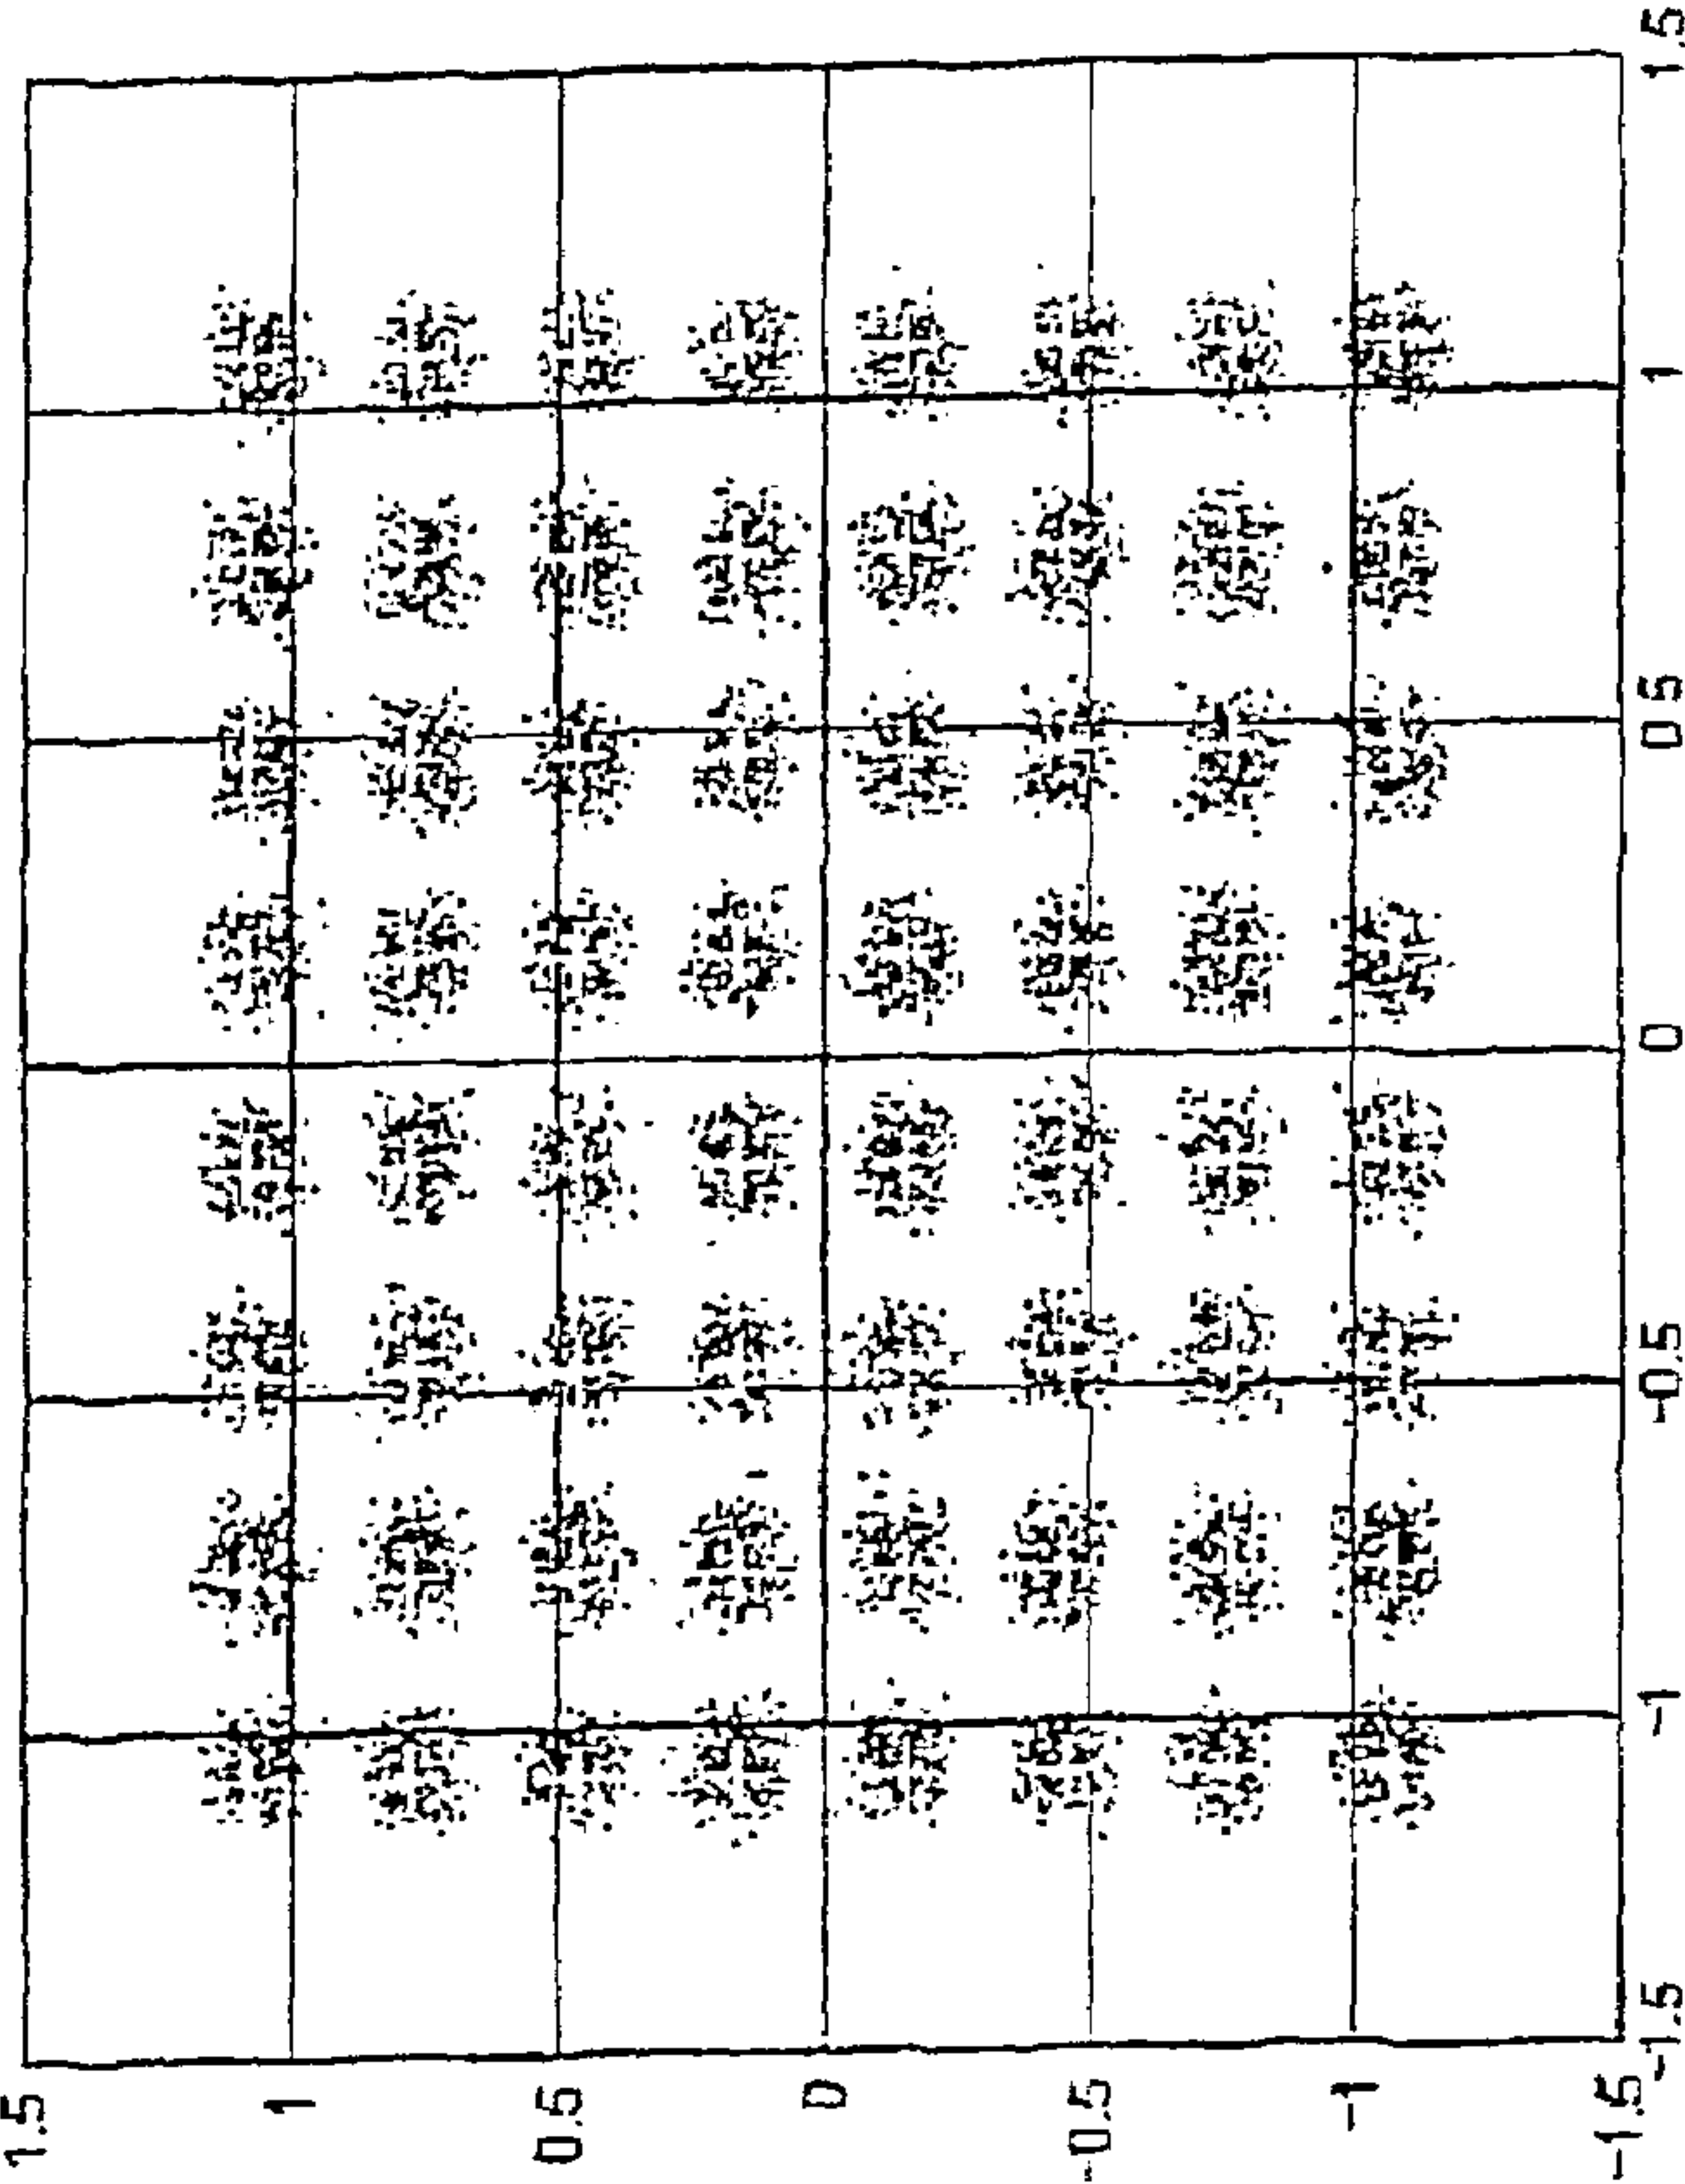 1.5
1
0.5
0
-0.5
-1
-1.5
-1.5
-1
-0.5
0
0 5
1
1.5